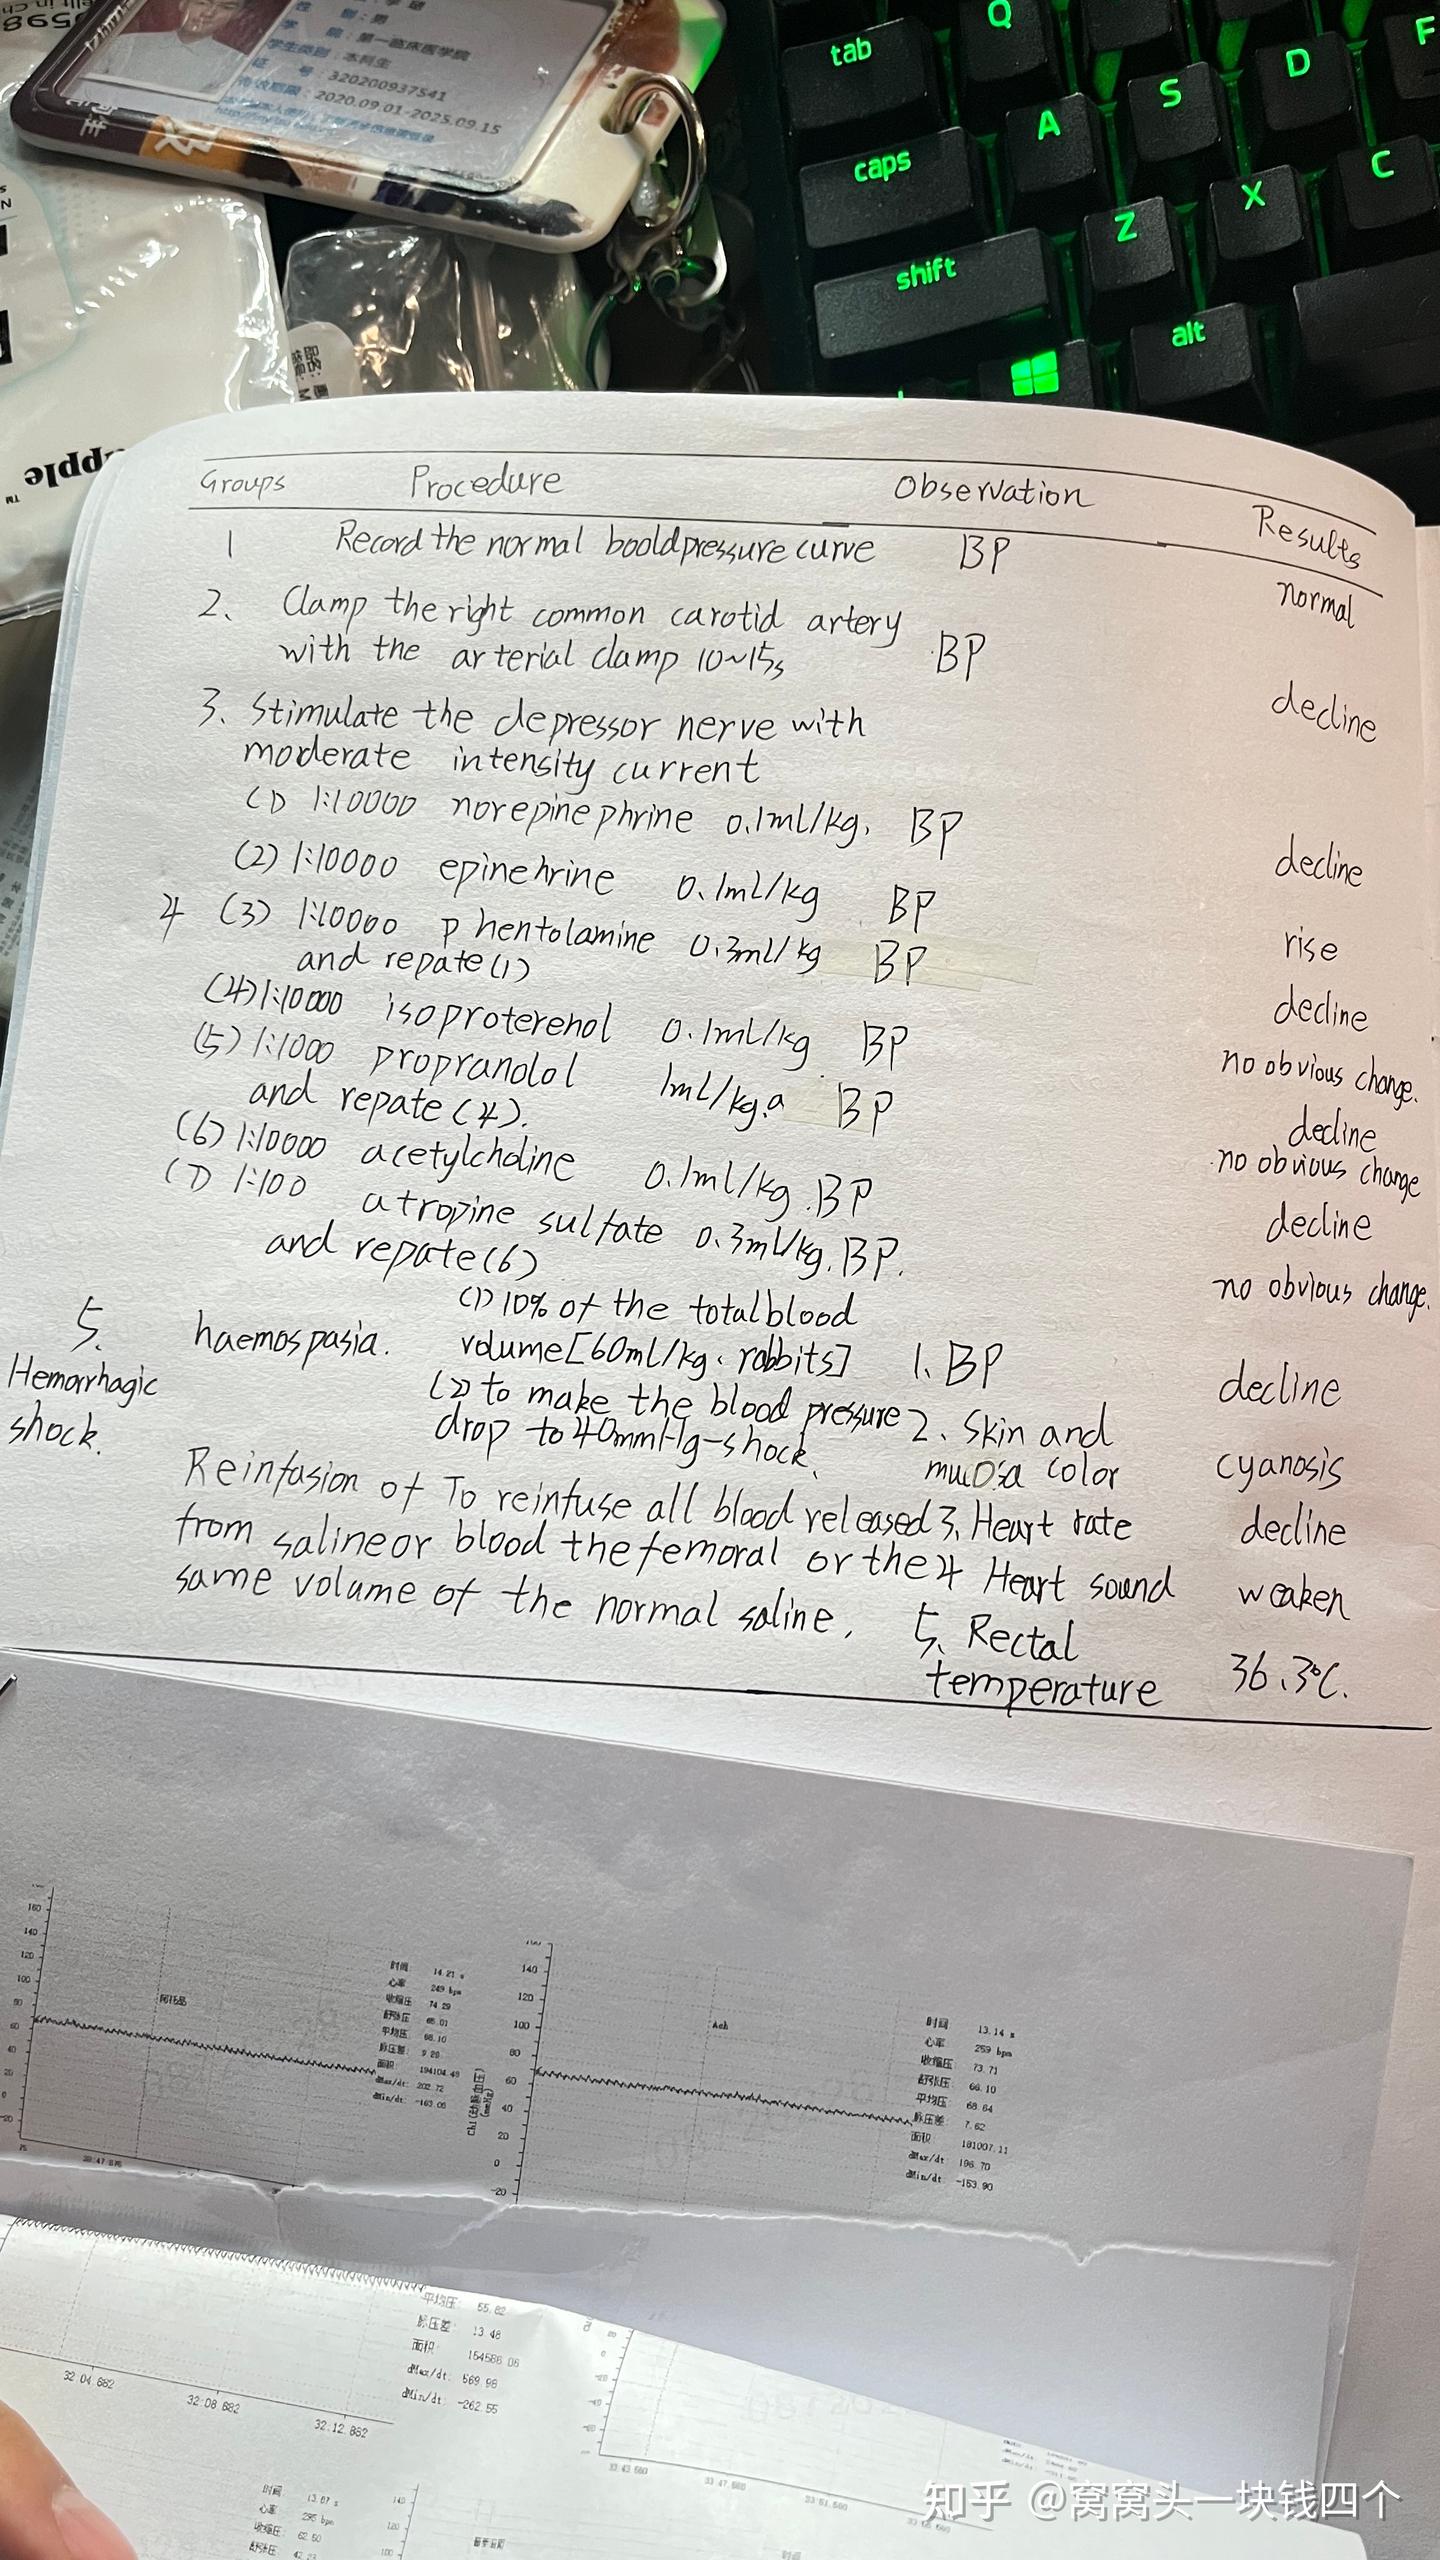 第一临床医学院
学生类别：本科生
证 号：320200937541
有效期限：2020.09.01-2025.09.15
tab
Q
A
S
D
F
caps
Z
X
C
shift
alt
Groups Procedure Observation Results
1 Record the normal booldpressure curve BP normal
2、 Clamp the right common carotid artery
with the arterial clamp 10~15s BP decline
3、Stimulate the depressor nerve with
moderate intensity current
(1) 1:10000 norepinephrine 0.1ml/kg、 BP decline
(2) 1:10000 epinehrine 0.1ml/kg BP rise
4 (3) 1:10000 phentolamine 0.3ml/kg BP decline
and repate(1)
(4) 1:10000 isoproterenol 0.1ml/kg BP no obvious change.
(5) 1:1000 propranolol 1ml/kg.a BP decline
and repate(4).
(6) 1:10000 acetylcholine 0.1ml/kg.BP no obvious change
(7) 1:100 atropine sulfate 0.3ml/kg.BP. decline
and repate(6) no obvious change.
5. haemospasia. (1) 10% of the total blood
volume[60ml/kg、rabbits] 1、BP decline
Hemorrhagic
shock.
(2) to make the blood pressure 2、Skin and
drop to 40mmHg-shock、 mucosa color cyanosis
Reinfusion of To reinfuse all blood released 3、Heart rate decline
from saline or blood the femoral or the 4 Heart sound weaken
same volume of the normal saline. 5、Rectal
temperature 36.3℃.
160
140
120
100
80
60
40
20
0
-20
阿托品
时间 14.21 s
心率 249 bpm
收缩压 74.29
舒张压 65.01
平均压 68.10
脉压差 9.28
面积 194104.49
dMax/dt: 202.72
dMin/dt: -163.06
140
120
100
80
60
40
20
0
-20
Ach
时间 13.14 s
心率 259 bpm
收缩压 73.71
舒张压: 66.10
平均压: 68.64
脉压差 7.62
面积 181007.11
dMax/dt 196.70
dMin/dt -153.90
平均压: 55.82
脉压差: 13.48
面积: 154586.06
dMax/dt: 569.98
dMin/dt: -262.55
32:04.882
32:08.882
32:12.882
时间 13.07 s
心率 295 bpm
收缩压: 62.50
140
120
100
知乎 @窝窝头一块钱四个